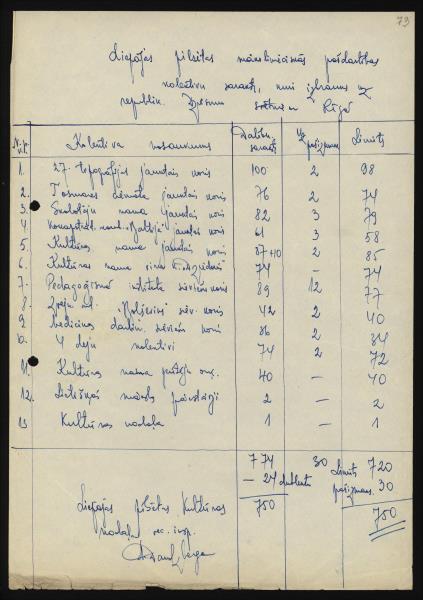 73
Liepājas pilsētas mākslinieciskās pašdarbības
kolektīvu saraksts, kuri izbrauc uz
republik. Dziesmu svētkiem Rīgā
N.r.k. Kolektīva nosaukums Dalībn. saraksts Uz pašizmaks. Limits
1. 27. tipogrāfijas jauktais koris 100 2 98
2. Tosmares arodnāma jauktais koris 76 2 74
3. Skolotāju nama jauktais koris 82 3 79
4. jauktais koris 61 3 58
5. Kultūras nama jauktais koris 87+10 2 85
6. Kultūras nama vīru k. 74 – 74
7. Pedagoģiskā institūta sieviešu koris 89 12 77
8. Zveju "Boļševiks" siev. koris 42 2 40
9. Medicīnas darbin. sieviešu koris 86 2 84
10. 4 deju kolektīvi 74 2 72
11. Kultūras nama pūtēju ork. 40 – 40
12. Lietišķās mākslas pārstāvji 2 – 2
13 Kultūras nodaļa 1 – 1
774 30 Limits 720
– 24 dublanti pašizmaks. 30
750 750
Liepājas pilsētas Kultūras
nodaļas vec. insp.